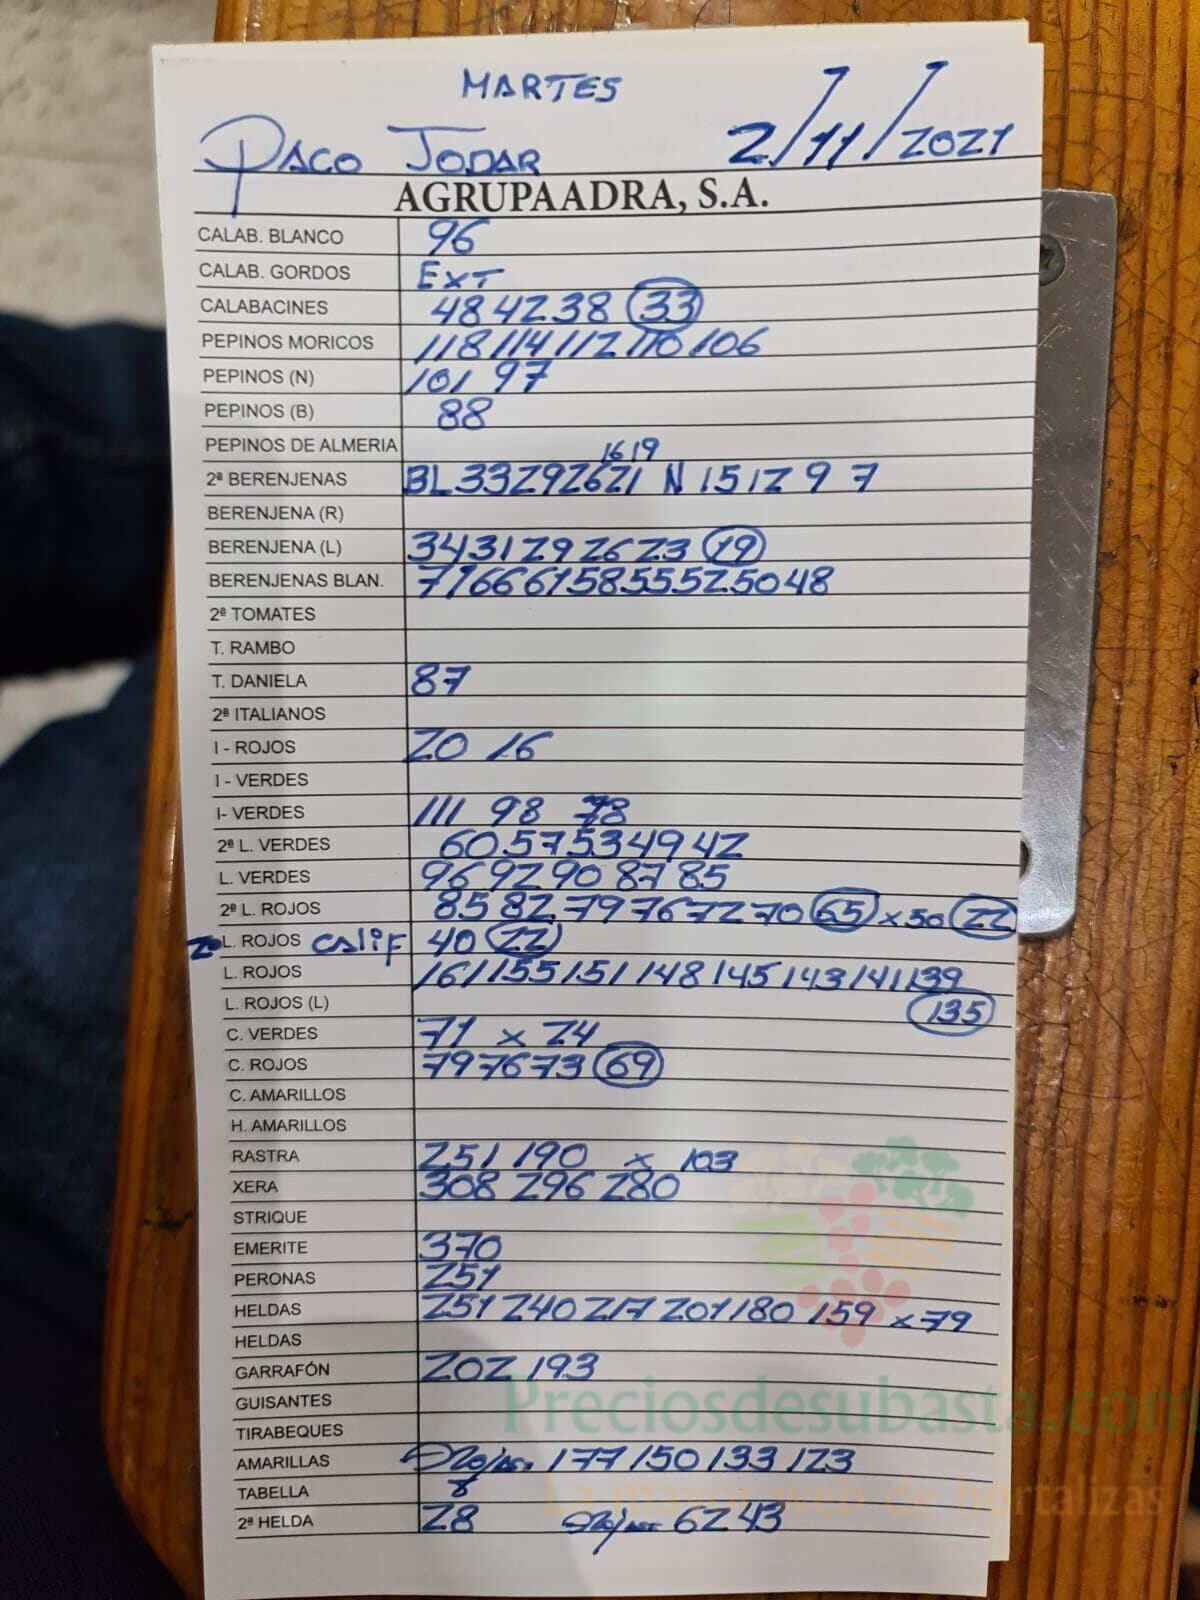 MARTES
PACO JODAR 2/11/2021
AGRUPAADRA, S.A.
CALAB. BLANCO 96
CALAB. GORDOS EXT
CALABACINES 48 42 38 33
PEPINOS MORICOS 118 114 112 110 106
PEPINOS (N) 101 97
PEPINOS (B) 88
PEPINOS DE ALMERIA
16 19
2ª BERENJENAS BL 33 29 26 21 N 15 12 9 7
BERENJENA (R)
BERENJENA (L) 34 31 29 26 23 19
BERENJENAS BLAN. 71 66 61 58 55 52 50 48
2ª TOMATES
T. RAMBO
T. DANIELA 87
2ª ITALIANOS
I - ROJOS 20 16
I - VERDES
I- VERDES 111 98 78
2ª L. VERDES 60 57 53 49 42
L. VERDES 96 92 90 87 85
2ª L. ROJOS 85 82 79 76 72 70 65 x 50 22
L. ROJOS CALIF 40 22
L. ROJOS 161 155 151 148 145 143 141 139
L. ROJOS (L) 135
C. VERDES 71 x 24
C. ROJOS 79 76 73 69
C. AMARILLOS
H. AMARILLOS
RASTRA 251 190 x 103
XERA 308 296 280
STRIQUE
EMERITE 370
PERONAS 251
HELDAS 251 240 217 201 180 159 x 79
HELDAS
GARRAFÓN 202 193
Preciosdesubasta.com
GUISANTES
TIRABEQUES
AMARILLAS 177 150 133 123
TABELLA 8
La mayor web de hortalizas
2ª HELDA 28 62 43